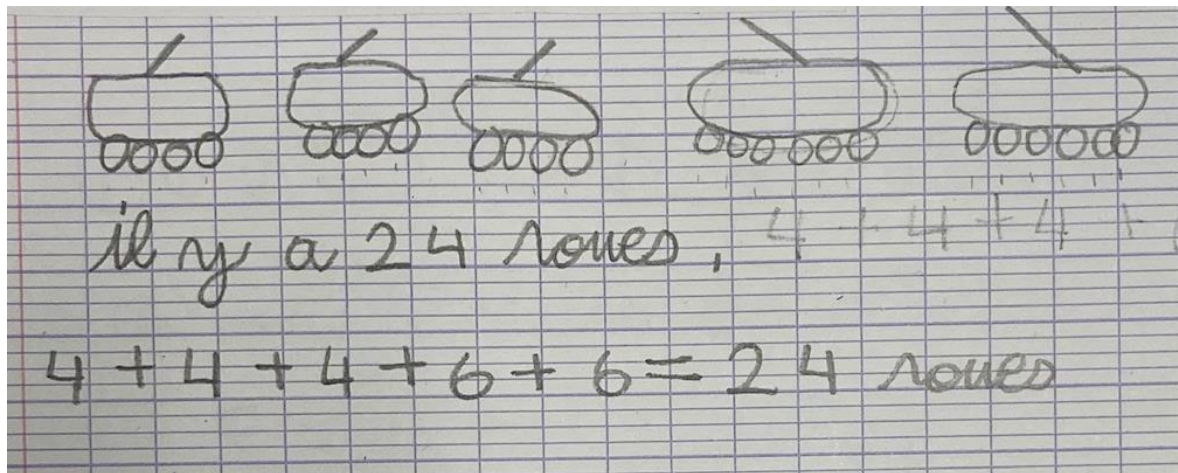 il y a 24 roues, 4 + 4 + 4 +
4 + 4 + 4 + 6 + 6 = 24 roues